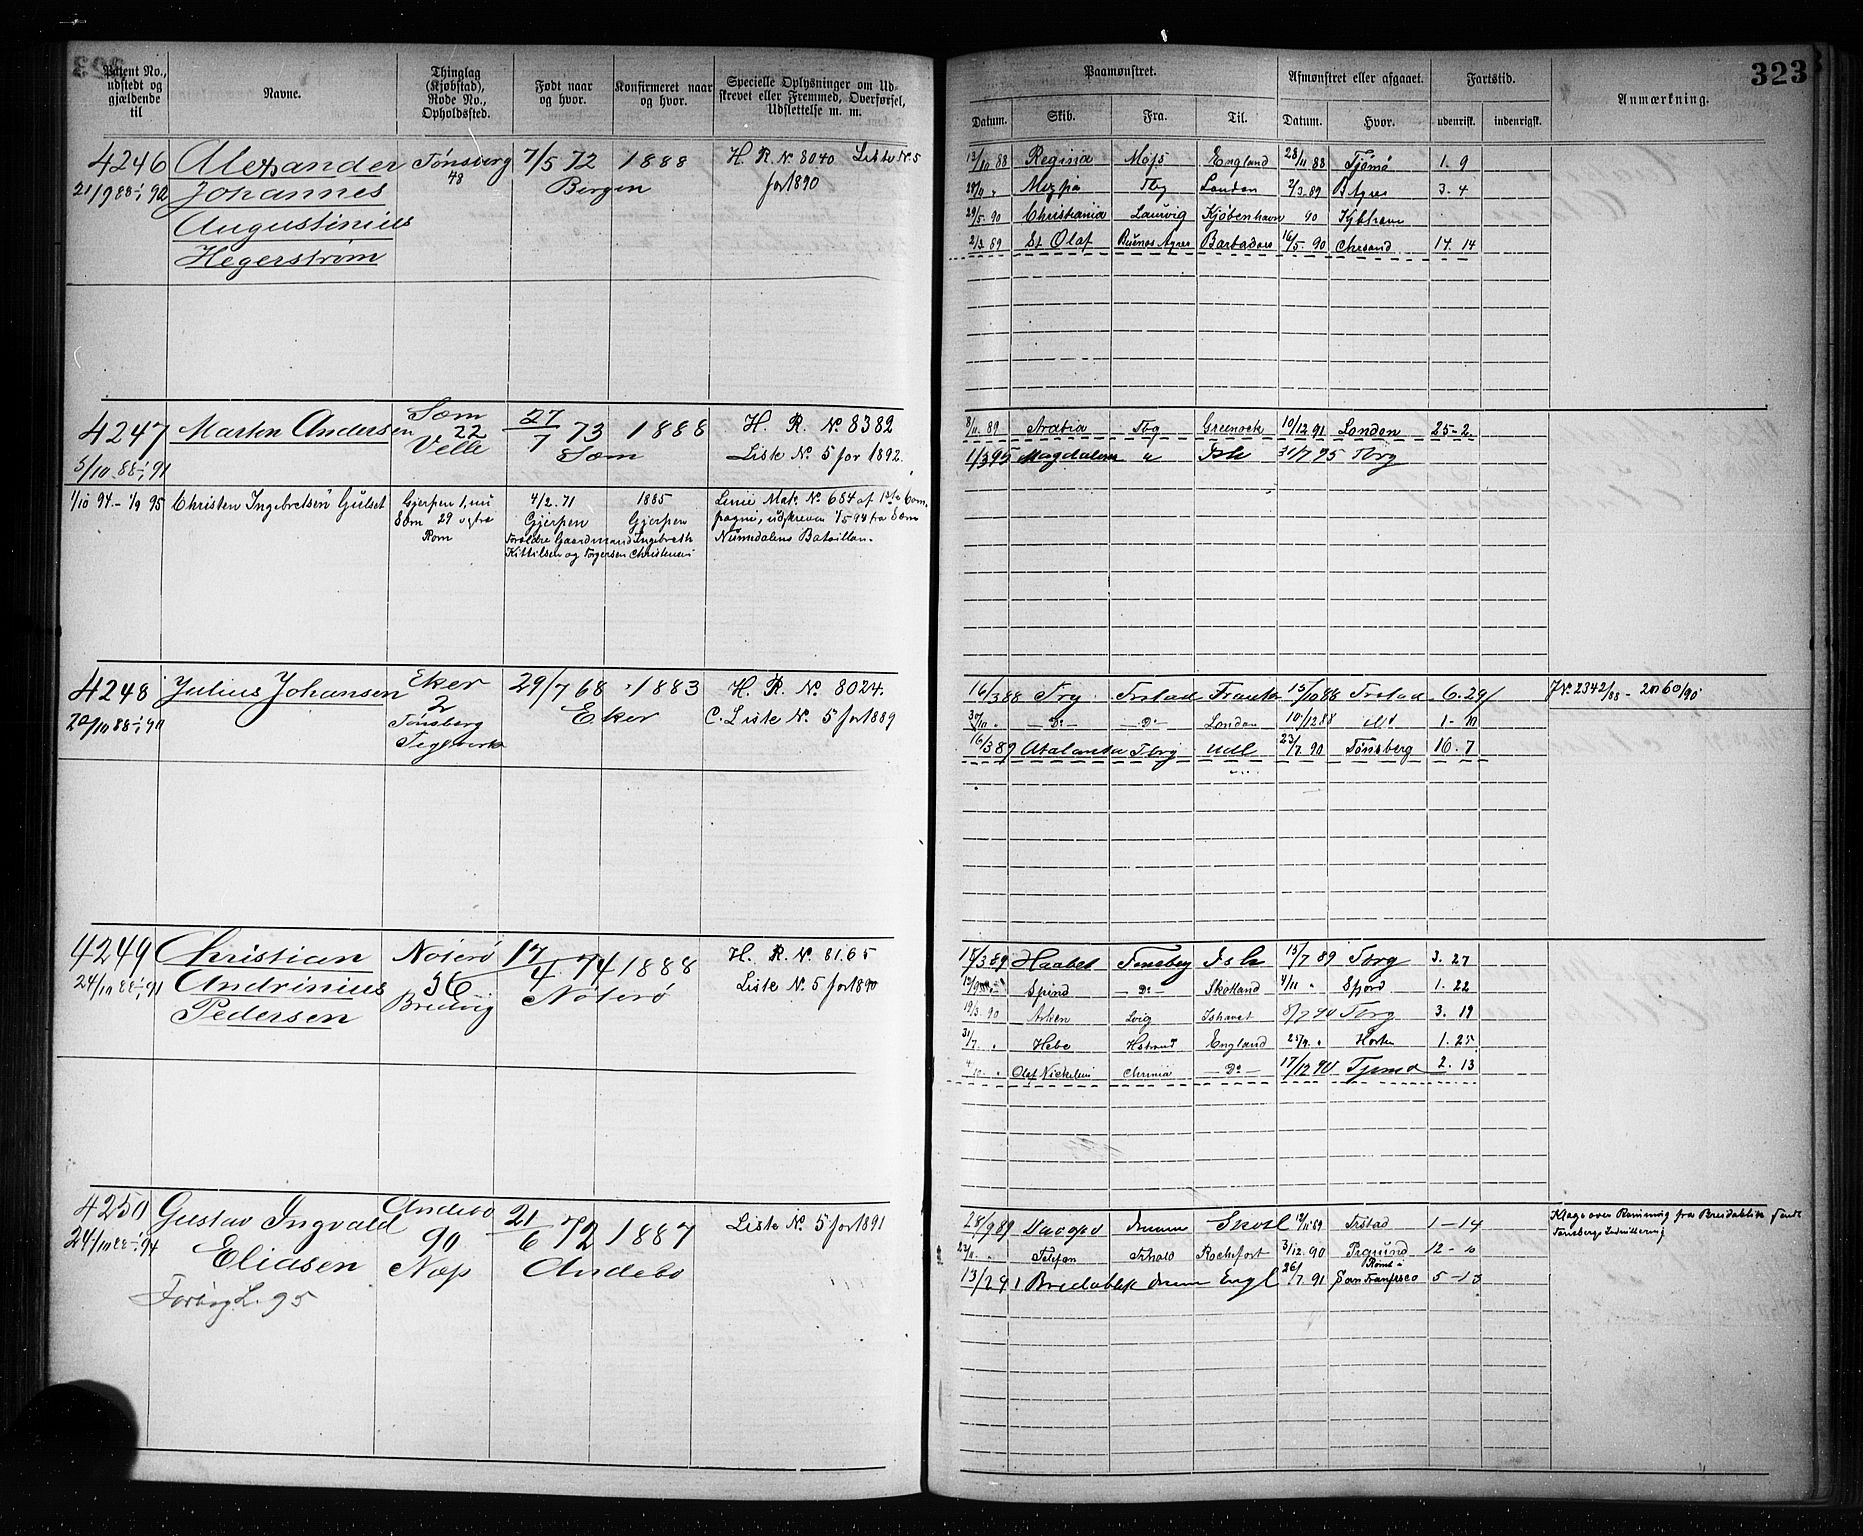 323
Patent No., udstedt og gjældende til
Navne.
Thinglag (Kjøbstad), Rode No., Opholdssted.
Født naar og hvor.
Konfirmeret naar og hvor.
Specielle Oplysninger om Udskrevet eller Fremmed, Overførsel, Udslettelse m. m.
Paamønstret.
Afmønstret eller afgaaet.
Fartstid.
Anmærkning.
Datum. Skib. Fra. Til. Datum. Hvor. udenrigsk. indenrigsk.
4246 Alexander Tønsberg 7/5 72 1888 H. R. No. 8040 Liste No. 5
21/9 88 - 90 Johannes 48 Bergen for 1890
Augustinius
Hegerstrøm
12/10 88 Regina Moss England 28/11 88 Tjømø 1. 9
Tbg London 2/3 89 B Ayres 3. 4
29/5 90 Christiania Laurvig Kjøbenhavn 90 Kjbhavn
2/3 89 St Olaf Buenos Ayres Barbados 16/5 90 Chrsand 14. 14
4247 Marten Andersen Sem 22 27/7 73 1888 H. R. No 8382
5/10 88 - 91 Velle Sem Liste No. 5 for 1892.
8/11 89 Arabia Tbg Greenock 10/12 91 London 25-2.
1/3 95 Magdalena " Ish 31/7 95 Tbrg
1/10 94 - 1/9 95 Christen Ingebretsen Gulset Gjerpen 1, nu 4/2. 71 1885 Linie Mdk No 684 af 1ste Com-
Sem 29 Gjerpen Gjerpen pagni, udskreven 1/5 94 fra Sem
Rom Forældre Gaardmand Ingebreth Numedalens Bataillon.
Kittilsen og Torgersen Christensen
4248 Julius Johansen Eker 29/7 68 1883 H. R. No. 8024.
20/10 88 - 90 2 Eker C. Liste No. 5 for 1889
Tønsberg
Teglverk
16/3 88 Try Frstad 15/10 88 Frstad 6. 29 J No. 2342/88 - 2060/90
30/10 " Do Do London 10/12 88 1-10
16/3 89 Atalanta Tbrg Udl 23/7 90 Tønsberg 16. 7
4249 Christian Noterø 17/4 74 1888 H. R. No. 8165
24/10 88 - 91 Andrinius 56 Nøterø Liste No. 5 for 1890
Pedersen
15/3 89 Haabet Tønsberg Ish 15/7 89 Tbrg 3. 27
Spind Do Skotland 4/11 " 1. 22
19/3 90 Lvig Ishavet 8/7 90 Tbrg 3. 19
31/7 " Hebe Hstrand England Horten 1. 25
Olaf Nickelsen Chrnia Do 17/12 90 Tjømø 2. 13
4250 Gustav Ingvald Andebo 21/6 72 1887 Liste No. 5 for 1891
24/10 88 - 94 Eliasen 90 Andebo
Næs
28/9 89 Dram Skotl Frstad 1-14 Klage over Rømning fra Breidablik sendt
Tønsberg
Rochefort 3/12. 90 12-10
13/2 91 Bredablik dram Engl 26/7 91 Rømt i San Fransisco 5-13